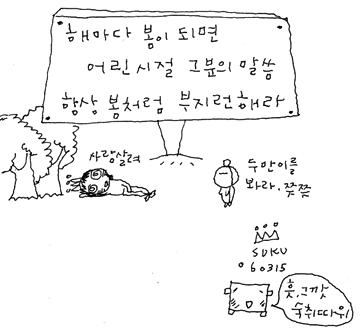 해마다 봄이 되면
어린시절 그분의 말씀
항상 봄처럼 부지런해라
사람살려
두만이를
봐라. 쯧쯧
SUKU
060315
흥, 그깟
숙취따위